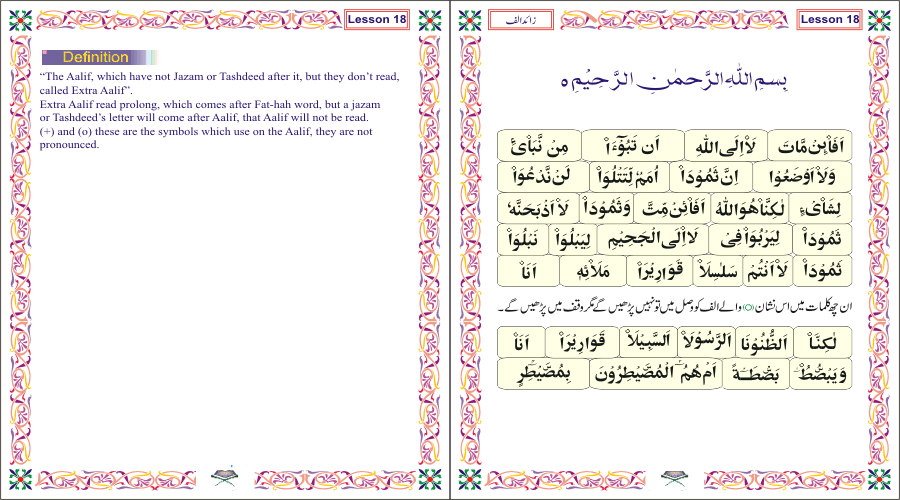 Lesson 18
Definition
“The Aalif, which have not Jazam or Tashdeed after it, but they don’t read,
called Extra Aalif”.
Extra Aalif read prolong, which comes after Fat-hah word, but a jazam
or Tashdeed’s letter will come after Aalif, that Aalif will not be read.
(+) and (o) these are the symbols which use on the Aalif, they are not
pronounced.
زائد الف Lesson 18
بِسْمِ اللّٰهِ الرَّحْمٰنِ الرَّحِيْمِ ه
اَفَا۠ئِنْ مَّاتَ لَا۠اِلَى اللّٰهِ اَنْ تَبُوْٓءَا۠ مِنْ نَّبَاۡئِ
وَلَا۠اَوْضَعُوْا اِنَّ ثَمُوْدَا۠ اُمَمٌ لِّتَتْلُوَا۠ لَنْ نَّدْعُوَا۠
لِشَا۠یْءٍ لٰكِنَّا۠هُوَاللّٰهُ اَفَا۠ئِنْ مِّتَّ وَثَمُوْدَا۠ لَا۠اَذْبَحَنَّهٗ
ثَمُوْدَا۠ لِيَرْبُوَا۠فِیْ لَا۠اِلَى الْجَحِيْمِ لِيَبْلُوَا۠ نَبْلُوَا۠
ثَمُوْدَا۠ لَا۠اَنْتُمْ سَلٰسِلَا۠ قَوَارِيْرَا۠ مَلَا۠ئِهٖ اَنَا۠
ان چھ کلمات میں اس نشان (○) والے الف کو وصل میں تو نہیں پڑھیں گے مگر وقف میں پڑھیں گے۔
لٰكِنَّا۠ اَلظُّنُوْنَا اَلرَّسُوْلَا۠ اَلسَّبِيْلَا۠ قَوَارِيْرَا۠ اَنَا۠
وَيَبْصُۜطُ بَصْۜطَةً اَمْ هُمُ الْمُصَۜيْطِرُوْنَ بِمُصَۜيْطِرٍ